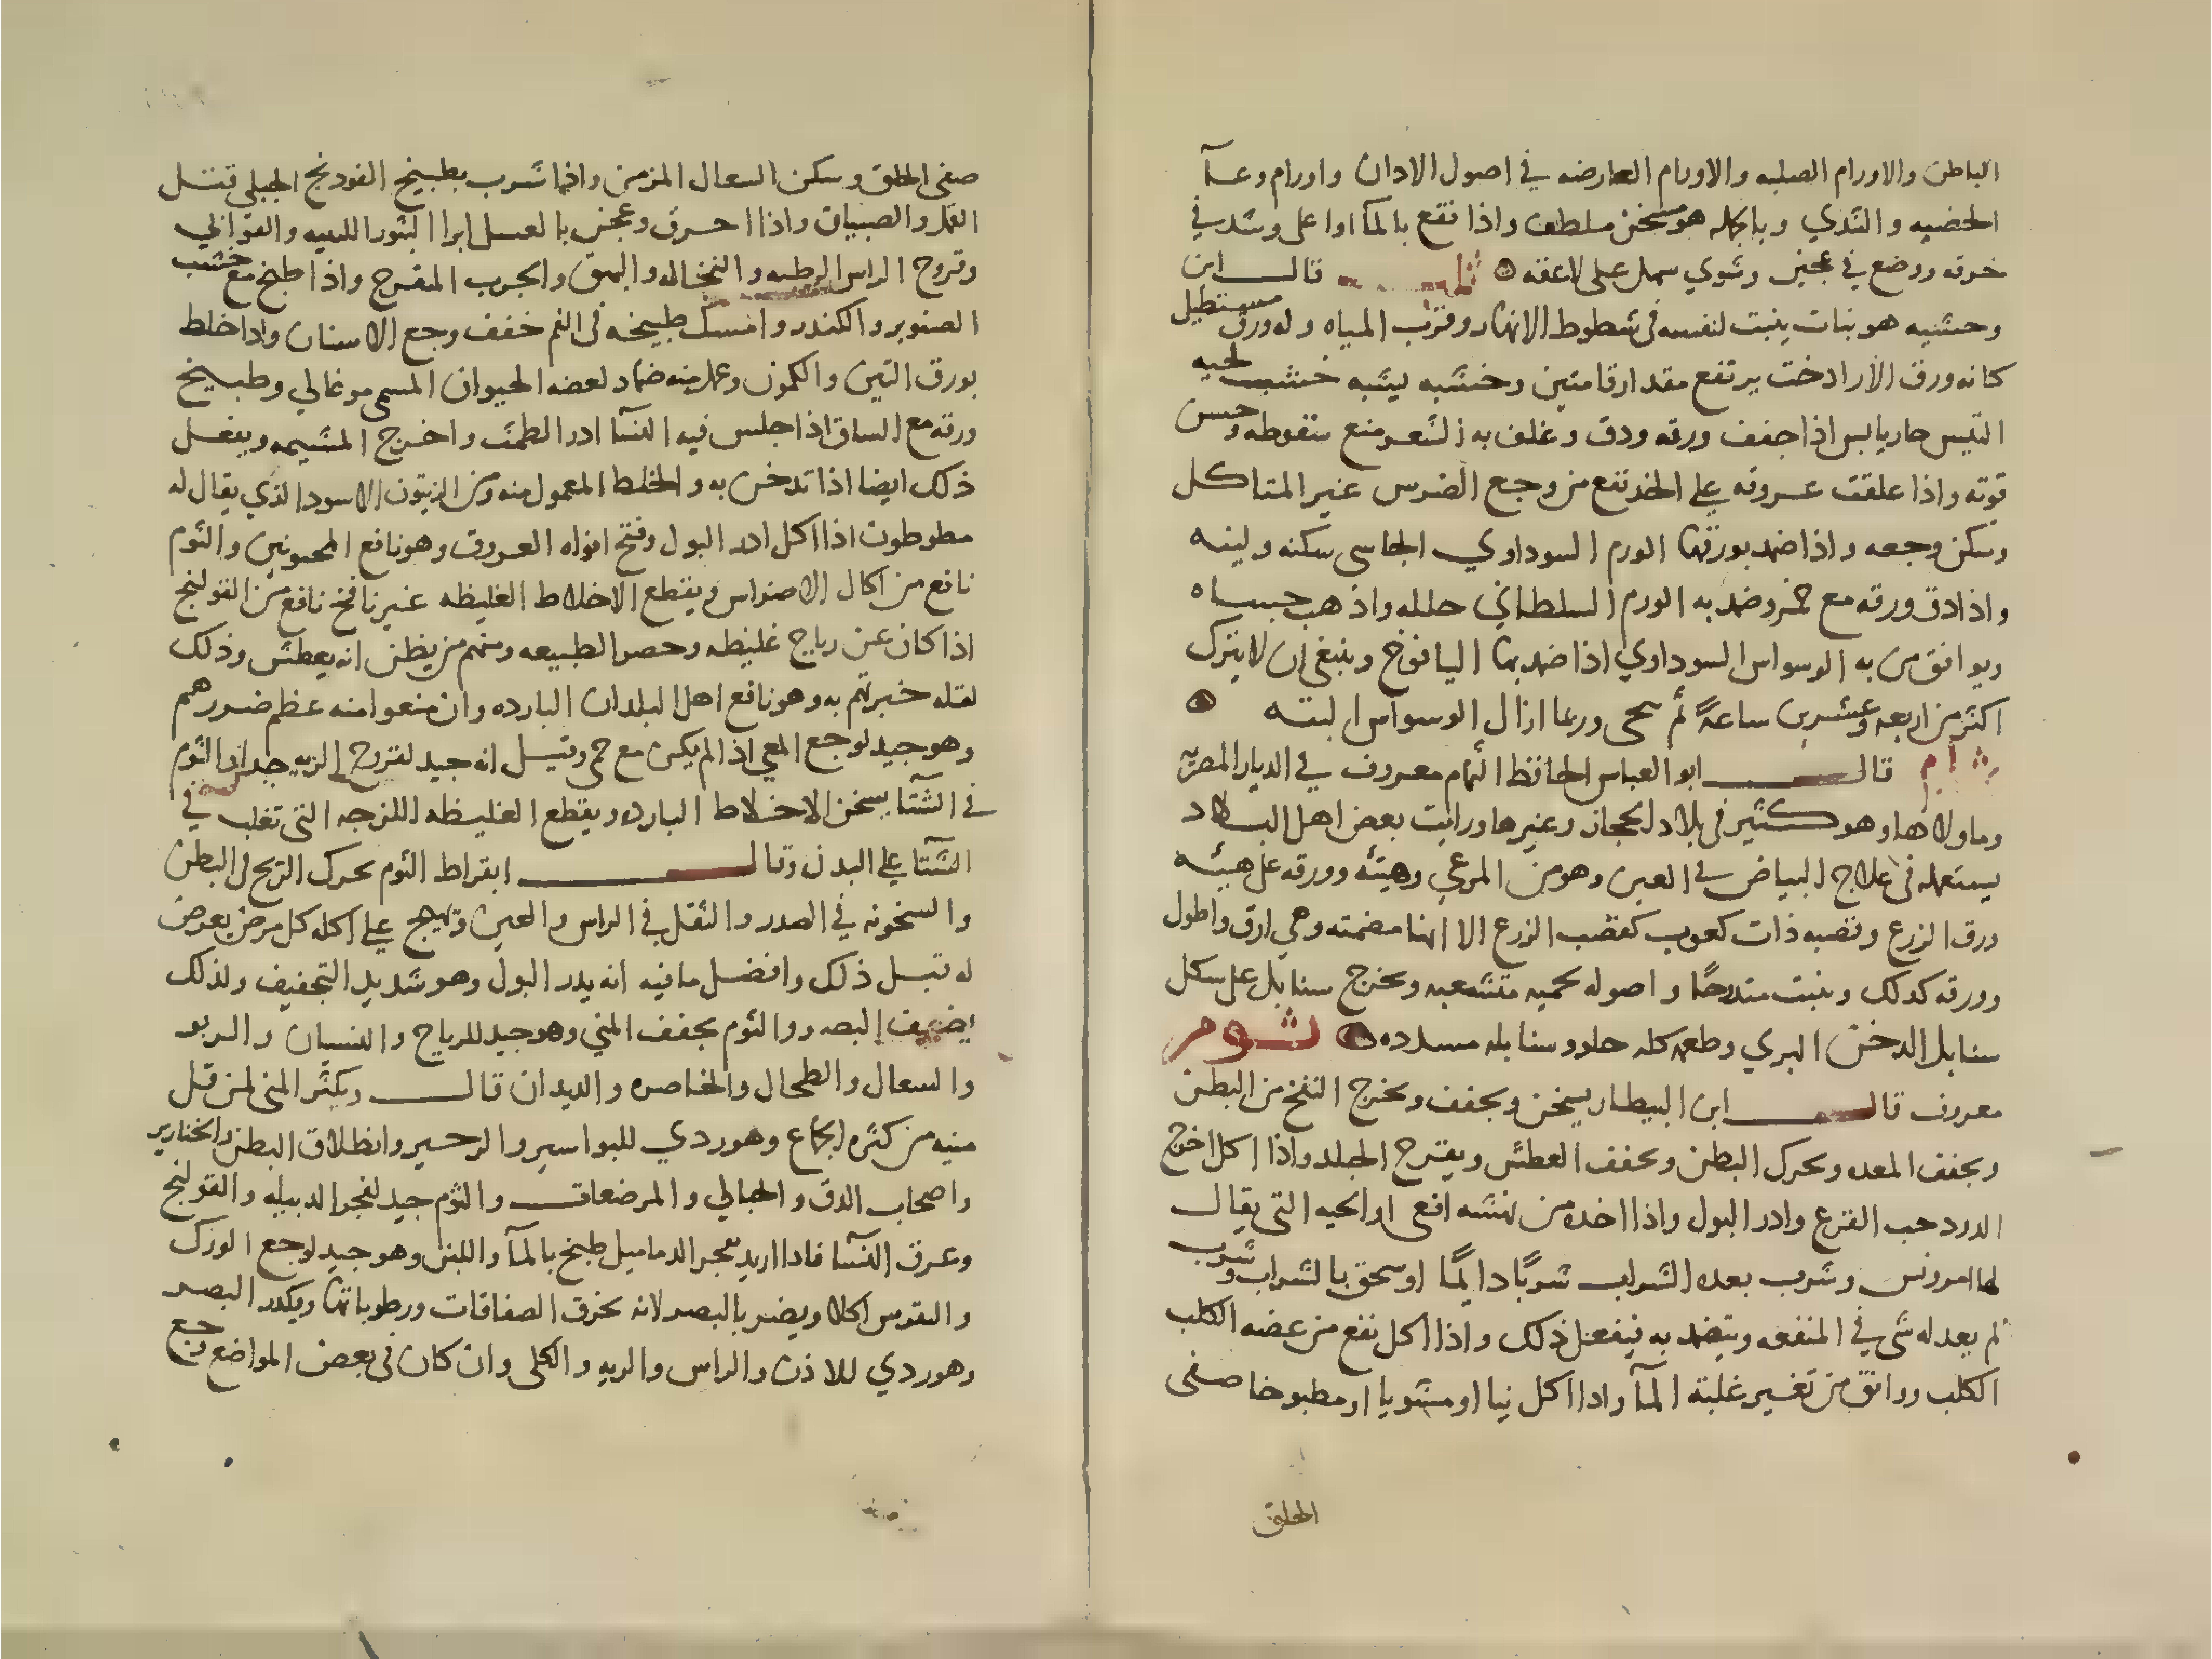 الباطن والاورام الصلبه والاورام العارضه في اصول الاذان واورام وعآ
الخصيه والثدي وبالجمله هو مسخن ملطف واذا نقع بالمآ اوا على وشد في
خرقه ووضع في عجين وشوي سهل على لاعقه قالــ ابن
وحشيه هو نبات ينبت لنفسه فى شطوط الانهار وقرب المياه وله ورق مستطيل
كانه ورق الازادخت يرتفع مقدار قامتين وخشبه يشبه خشب لحيه
التيس حار يابس اذا جفف ورقه ودق وغلف به الشعر منع سقوطه وحسن
قوته واذا علقت عروقه على الخد نفع من وجع الضرس غير المتاكل
وسكن وجعه واذا ضمد بورقها الورم السوداوي الجاسى سكنه ولينه
واذا دق ورقه مع خمر وضمد به الورم السلطاني حلله واذهب جساه
ويوافق من به الوسواس السوداوي اذا ضمد بها اليافوخ وينبغي ان لا يترك
اكثر من اربعه وعشرين ساعةً ثم ينحى وربما ازال الوسواس البته
ثمام قالــ ابو العباس الحافظ الثمام معروف في الديار المصريه
وما والاها وهو كثير فى بلاد الحجاز وغيرها ورايت بعض اهل البلاد
يستعمله فى علاج البياض في العين وهو من المرعي وهيئه وورقه على هيئه
ورق الزرع وقصبه ذات كعوب كقصب الزرع الا انها مصمته وهي ارق واطول
وورقه كذلك وينبت متدوحًا واصوله لحميه متشعبه ويخرج سنابل على شكل
سنابل الدخن البري وطعمه كله حلو وسنابله مسدده ثــوم
معروف قالــ ابن البيطار يسخن ويجفف ويخرج النفخ من البطن
ويجفف المعده ويحرك البطن ويجفف العطش ويقرح الجلد واذا اكل اخرج
الدود حب القرع وادر البول واذا اخذه من نهشه افعى او الحيه التى يقال
لها امورنس وشرب بعده الشراب شربًا دايمًا او سحق بالشراب وشرب
لم يعد له شى في المنفعه ويتضمد به فيفعل ذلك واذا اكل نفع من عضه الكلب
الكلب ووافق من تغيير عليه المآ واذا اكل نيا او مشويا او مطبوخا صفى
الحلق
صفى الحلق وسكن السعال المزمن واذا شرب بطبيخ الفودنج الجبلي قتل
القمل والصيبان واذا احرق وعجن بالعسل ابرا البثور اللبنيه والقوابي
وقروح الراس الرطبه والنخاله والبهق والجرب المقرح واذا طبخ مع خشب
الصنوبر والكندر وامسك طبيخه فى الفم خفف وجع الاسنان واذا خلط
بورق التين والكمون وعمل منه ضماد لعضه الحيوان المسمى موغالي وطبيخ
ورقه مع الساق اذا جلس فيه النسآ ادر الطمث واخرج المشيمه ويفعل
ذلك ايضا اذا تدخن به والخلط المعمول منه ومن الزيتون الاسود الذي يقال له
مطوطون اذا اكل ادر البول وفتح افواه العروق وهو نافع المحبونين والثوم
نافع من اكال الاضراس ويقطع الاخلاط الغليظه غير نافخ نافع من القولنج
اذا كان عن رياح غليظه وحصر الطبيعه ومنهم من يظن انه يعطش وذلك
لقله خبرتهم به وهو نافع اهل البلدان البارده وان منعوا منه عظم ضررهم
وهو جيد لوجع المعي اذا لم يكن مع حمى وقيل انه جيد لقروح الريه جدا والثوم
في الشتآ يسخن الاخلاط البارده ويقطع الغليظه اللزجه التى تغلب في
الشتآ على البدن وقالــ ابقراط الثوم يحرك الريح فى البطن
والسخونه في الصدر والثقل في الراس والعين ويهيج على اكله كل مرض يعرض
له قبل ذلك وافضل ما فيه انه يدر البول وهو شديد التجفيف ولذلك
يضعف البصر والثوم يجفف المني وهو جيد للرياح والنسيان والربو
والسعال والطحال والخاصره والديدان قالــ ويكثر المنى لمن قل
منيه من كثره الجماع وهو ردي للبواسير والزحير وانطلاق البطن والخنازير
واصحاب الدق والحبالي والمرضعات والثوم جيد لفجر الدبيله والقولنج
وعرق النسا فاذا اريد لفجر الدماميل طبخ بالمآ واللبن وهو جيد لوجع الورك
والنقرس اكلا ويضر بالبصر لانه يخرق الصفاقات ورطوباتها ويكدر البصر
وهو ردي للاذن والراس والريه والكلى وان كان فى بعض المواضع وجع